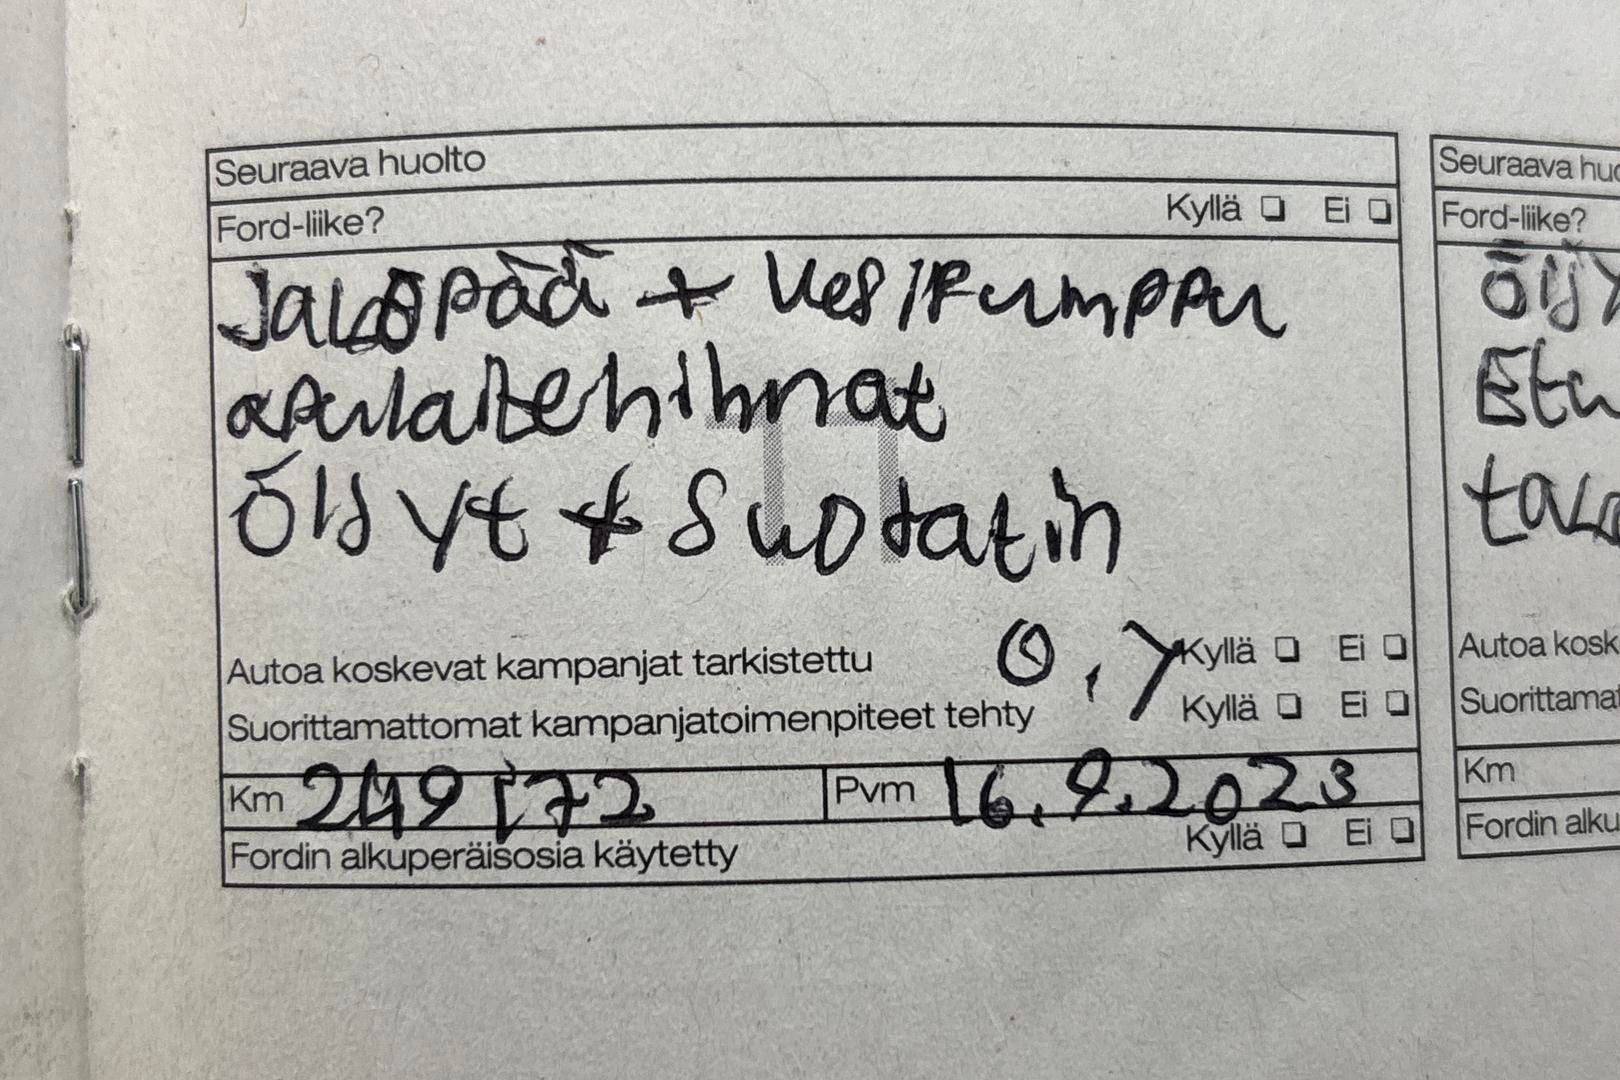 Seuraava huolto
Ford-liike? Kyllä ❏ Ei ❏
Jakopää + Vesipumppu
apulaitehihnat
Öljyt + Suodatin
O.Y
Autoa koskevat kampanjat tarkistettu Kyllä ❏ Ei ❏
Suorittamattomat kampanjatoimenpiteet tehty Kyllä ❏ Ei ❏
Km 249172 Pvm 16.9.2023
Fordin alkuperäisosia käytetty Kyllä ❏ Ei ❏
Seuraava huo
Ford-liike?
Öljy
Etu
Autoa kosk
Suorittamat
Km
Fordin alku